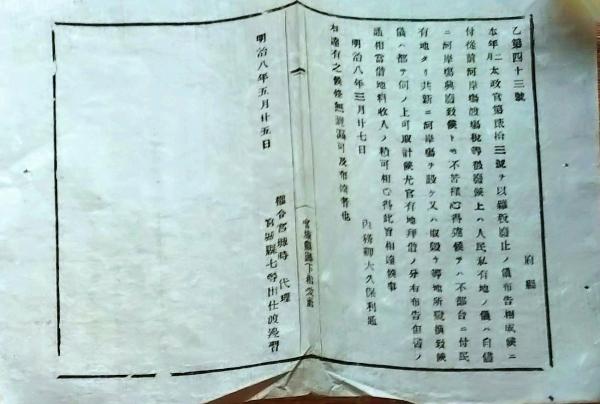 乙第四十三號
府縣
本年二月太政官第貳拾三號ヲ以雜税廢止ノ儀布告相成候ニ
付從前河岸場渡場税等被廢候上ハ人民私有地ノ儀ハ自儘
ニ河岸場興廢致候トモ不苦様心得違候テハ不都合ニ付民
有地タリ共新ニ河岸場ヲ設ケ又ハ取毀チ等地所變換致候
儀ハ都テ伺ノ上可取計候尤官有地拜借ノ分布告但書ノ
通相當借地料收入ノ積可相心得此旨相達候事
明治八年三月廿七日
內務卿大久保利通
右達有之候條無洩可及布達者也
明治八年五月廿五日
權令宮城時 代理
宮城縣七等出仕渡邊習